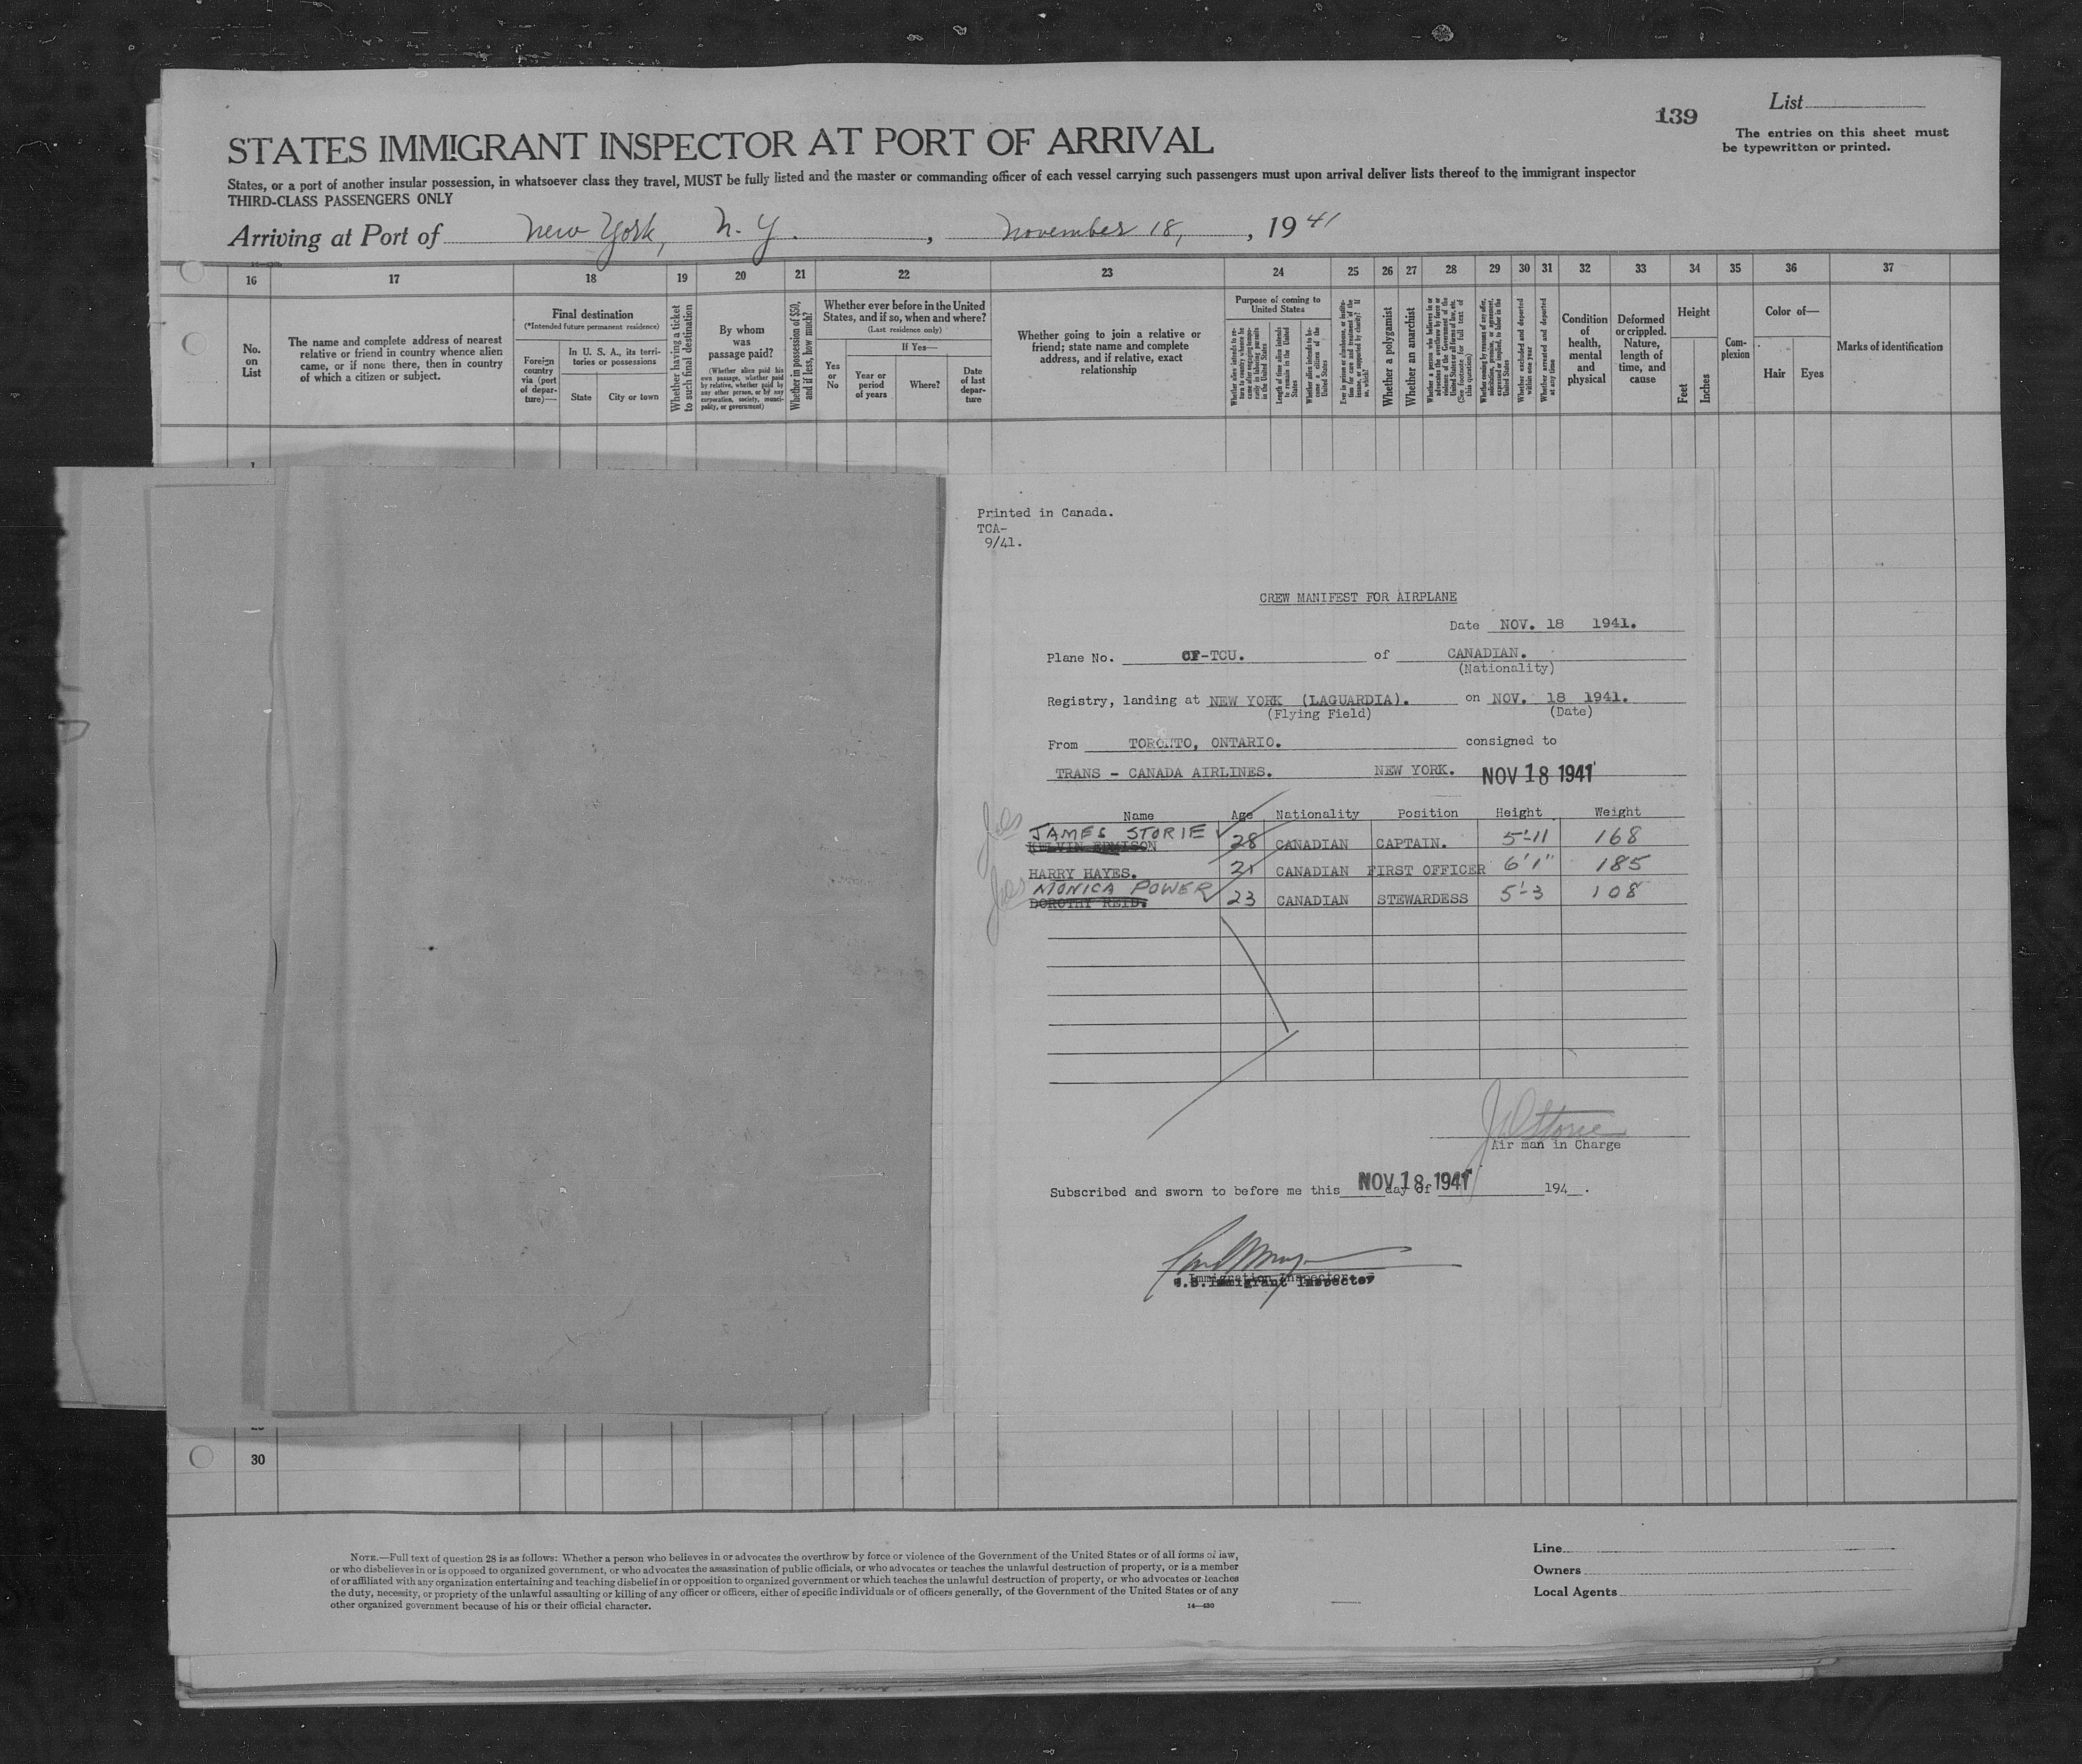 139
List
The entries on this sheet must
be typewritten or printed.
STATES IMMIGRANT INSPECTOR AT PORT OF ARRIVAL
States, or a port of another insular possession, in whatsoever class they travel, MUST be fully listed and the master or commanding officer of each vessel carrying such passengers must upon arrival deliver lists thereof to the immigrant inspector
THIRD-CLASS PASSENGERS ONLY
Arriving at Port of New York, N. Y. , November 18, , 1941
16 17 18 19 20 21 22 23 24 25 26 27 28 29 30 31 32 33 34 35 36 37
No.
on
List
The name and complete address of nearest
relative or friend in country whence alien
came, or if none there, then in country
of which a citizen or subject.
Final destination
(*Intended future permanent residence)
Foreign
country
via (port
of depar-
ture)—
In U. S. A., its terri-
tories or possessions
State
City or town
Whether having a ticket
to such final destination
By whom
was
passage paid?
(Whether alien paid his
own passage, whether paid
by relative, whether paid by
any other person, or by any
corporation, society, munici-
pality, or government)
Whether in possession of $50,
and if less, how much?
Whether ever before in the United
States, and if so, when and where?
(Last residence only)
If Yes—
Yes
or
No
Year or
period
of years
Where?
Date
of last
depar-
ture
Whether going to join a relative or
friend; state name and complete
address, and if relative, exact
relationship
Purpose of coming to
United States
Length of time alien intends
to remain in the United
States
Whether a polygamist
Whether an anarchist
Whether excluded and deported
within one year
Whether arrested and deported
at any time
Condition
of
health,
mental
and
physical
Deformed
or crippled.
Nature,
length of
time, and
cause
Height
Feet
Inches
Com-
plexion
Color of—
Hair
Eyes
Marks of identification
Printed in Canada.
TCA-
9/41.
CREW MANIFEST FOR AIRPLANE
Date NOV. 18 1941.
Plane No. CF-TCU. of CANADIAN.
(Nationality)
Registry, landing at NEW YORK (LAGUARDIA). on NOV. 18 1941.
(Flying Field) (Date)
From TORONTO, ONTARIO. consigned to
TRANS - CANADA AIRLINES. NEW YORK. NOV 18 1941
Name Age Nationality Position Height Weight
JAMES STORIE
KELVIN EDMISON 28 CANADIAN CAPTAIN. 5'-11 168
HARRY HAYES. 21 CANADIAN FIRST OFFICER 6'1" 185
MONICA POWER
DOROTHY REID. 23 CANADIAN STEWARDESS 5'-3 108
Air man in Charge
Subscribed and sworn to before me this day of 194 .
NOV 18 1941
Immigration Inspector
U.S. Immigrant Inspector
30
NOTE.—Full text of question 28 is as follows: Whether a person who believes in or advocates the overthrow by force or violence of the Government of the United States or of all forms of law,
or who disbelieves in or is opposed to organized government, or who advocates the assassination of public officials, or who advocates or teaches the unlawful destruction of property, or is a member
of or affiliated with any organization entertaining and teaching disbelief in or opposition to organized government or which teaches the unlawful destruction of property, or who advocates or teaches
the duty, necessity, or propriety of the unlawful assaulting or killing of any officer or officers, either of specific individuals or of officers generally, of the Government of the United States or of any
other organized government because of his or their official character.
14—430
Line
Owners
Local Agents